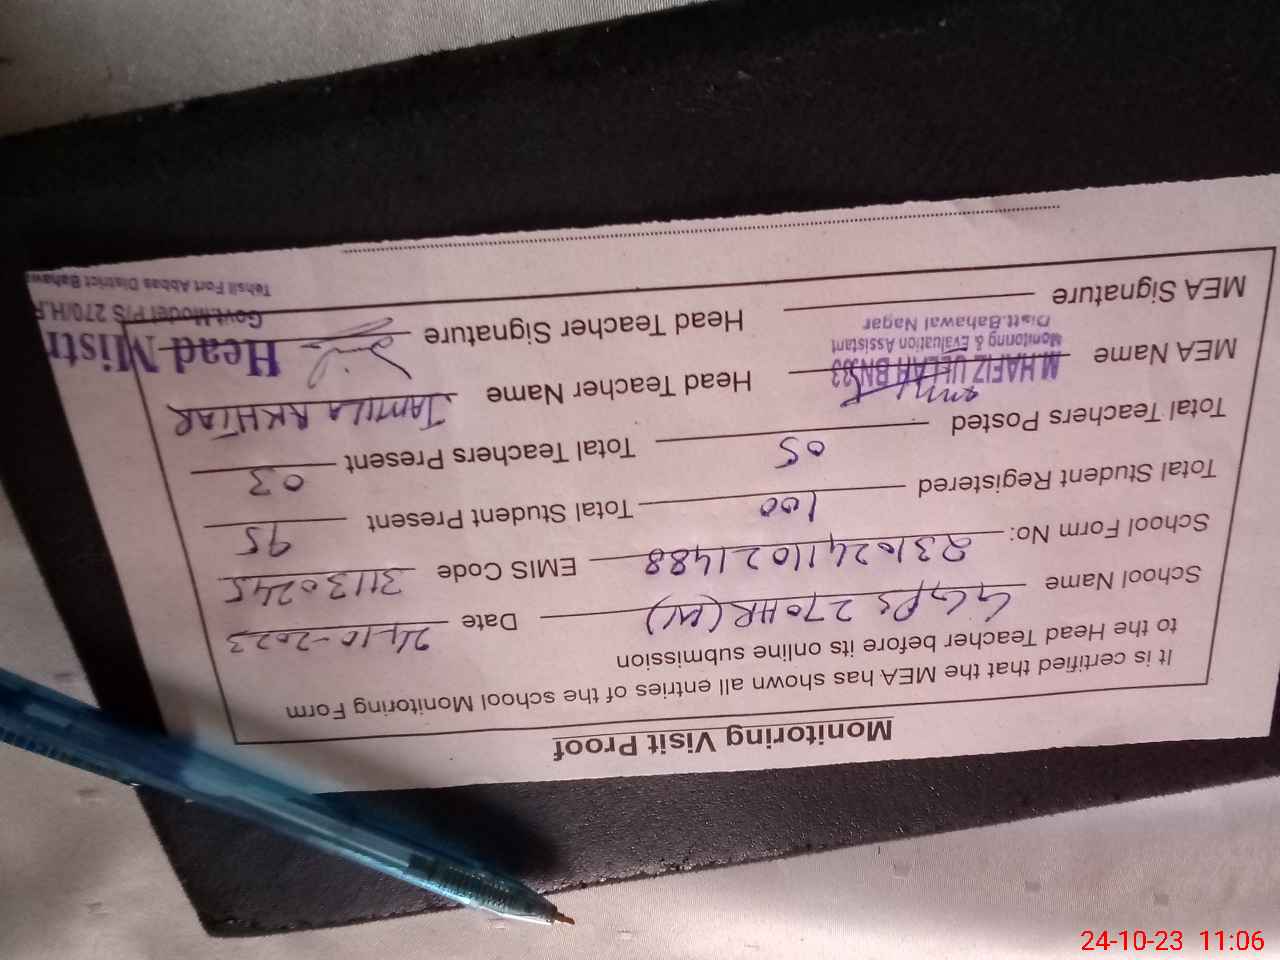 Monitoring Visit Proof
It is certified that the MEA has shown all entries of the school Monitoring Form
to the Head Teacher before its online submission
School Name GGPS 270HR (M) Date 24-10-2023
School Form No: 2310241102 1488 EMIS Code 31130245
Total Student Registered 100 Total Student Present 95
Total Teachers Posted 05 Total Teachers Present 03
MEA Name M.HAFIZ ULLAH BN533 Head Teacher Name JAMILA AKHTAR
Monitoring & Evaluation Assistant
Distt.Bahawal Nagar
MEA Signature Head Teacher Signature
Head Mistr
Govt.Model P/S 270/H.R
Tehsil Fort Abbas District Bahaw
24-10-23 11:06